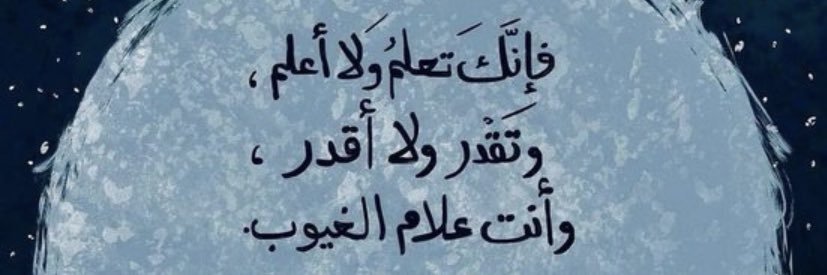 فإنَّكَ تعلمُ وَلا أعلم ،
وتَقْدر ولا أقدر ،
وأنت علام الغيوب.